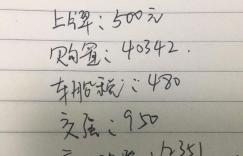 上牌：500元
购置：40342.
车船税：480
交强：950